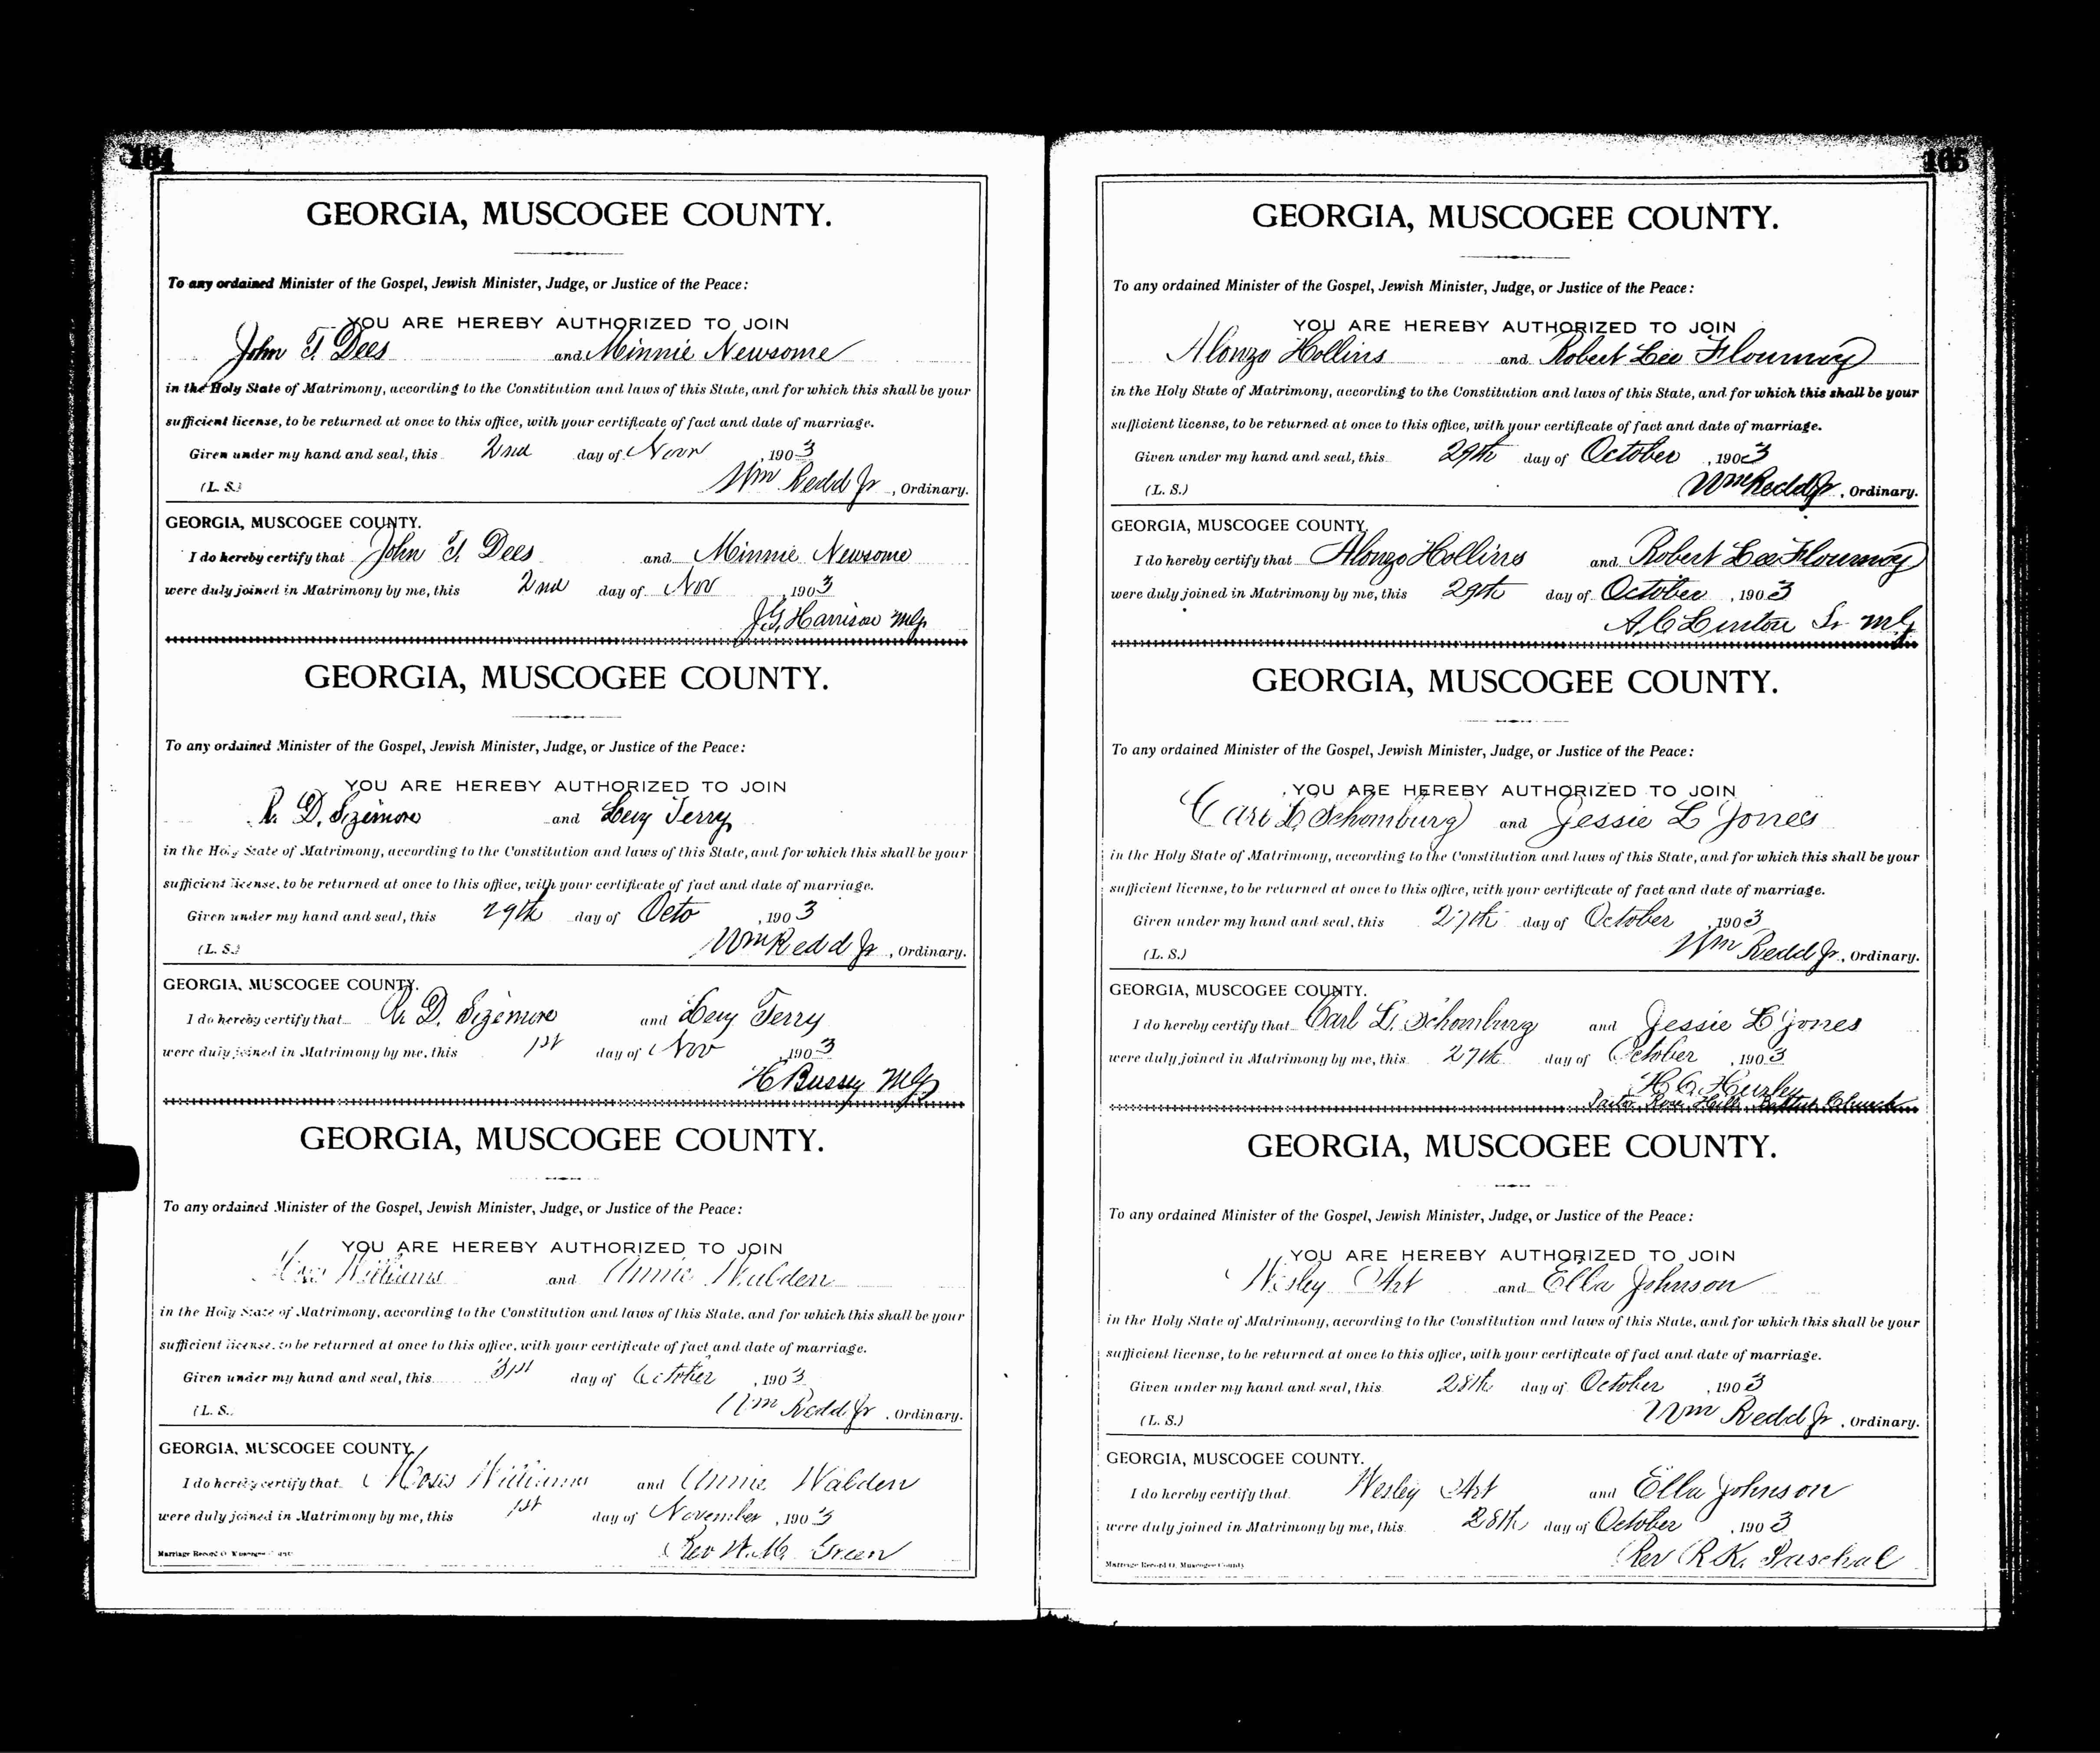 164
GEORGIA, MUSCOGEE COUNTY.
To any ordained Minister of the Gospel, Jewish Minister, Judge, or Justice of the Peace:
YOU ARE HEREBY AUTHORIZED TO JOIN
John T. Dees and Minnie Newsome
in the Holy State of Matrimony, according to the Constitution and laws of this State, and for which this shall be your
sufficient license, to be returned at once to this office, with your certificate of fact and date of marriage.
Given under my hand and seal, this 2nd day of Novr, 1903
(L. S.) Wm Redd Jr, Ordinary.
GEORGIA, MUSCOGEE COUNTY.
I do hereby certify that John T. Dees and Minnie Newsome
were duly joined in Matrimony by me, this 2nd day of Nov, 1903
J.G. Harrison MG
GEORGIA, MUSCOGEE COUNTY.
To any ordained Minister of the Gospel, Jewish Minister, Judge, or Justice of the Peace:
YOU ARE HEREBY AUTHORIZED TO JOIN
R. D. Sizemore and Lucy Terry
in the Holy State of Matrimony, according to the Constitution and laws of this State, and for which this shall be your
sufficient license, to be returned at once to this office, with your certificate of fact and date of marriage.
Given under my hand and seal, this 29th day of Octo, 1903
(L. S.) Wm Redd Jr, Ordinary.
GEORGIA, MUSCOGEE COUNTY.
I do hereby certify that R. D. Sizemore and Lucy Terry
were duly joined in Matrimony by me, this 1st day of Nov, 1903
H Bussey MG
GEORGIA, MUSCOGEE COUNTY.
To any ordained Minister of the Gospel, Jewish Minister, Judge, or Justice of the Peace:
YOU ARE HEREBY AUTHORIZED TO JOIN
Williams and Annie Walden
in the Holy State of Matrimony, according to the Constitution and laws of this State, and for which this shall be your
sufficient license, to be returned at once to this office, with your certificate of fact and date of marriage.
Given under my hand and seal, this 31st day of October, 1903
(L. S. Wm Redd Jr, Ordinary.
GEORGIA, MUSCOGEE COUNTY.
I do hereby certify that Moses Williams and Annie Walden
were duly joined in Matrimony by me, this 1st day of November, 1903
Rev W.M. Green
Marriage Record O.
165
GEORGIA, MUSCOGEE COUNTY.
To any ordained Minister of the Gospel, Jewish Minister, Judge, or Justice of the Peace:
YOU ARE HEREBY AUTHORIZED TO JOIN
Alonzo Hollins and Robert Lee Flournoy
in the Holy State of Matrimony, according to the Constitution and laws of this State, and for which this shall be your
sufficient license, to be returned at once to this office, with your certificate of fact and date of marriage.
Given under my hand and seal, this 29th day of October, 1903
(L. S.) Wm Redd Jr, Ordinary.
GEORGIA, MUSCOGEE COUNTY.
I do hereby certify that Alonzo Hollins and Robert Lee Flournoy
were duly joined in Matrimony by me, this 29th day of October, 1903
A.C. Linton Sr MG
GEORGIA, MUSCOGEE COUNTY.
To any ordained Minister of the Gospel, Jewish Minister, Judge, or Justice of the Peace:
YOU ARE HEREBY AUTHORIZED TO JOIN
Carl L. Schomburg and Jessie L Jones
in the Holy State of Matrimony, according to the Constitution and laws of this State, and for which this shall be your
sufficient license, to be returned at once to this office, with your certificate of fact and date of marriage.
Given under my hand and seal, this 27th day of October, 1903
(L. S.) Wm Redd Jr, Ordinary.
GEORGIA, MUSCOGEE COUNTY.
I do hereby certify that Carl L. Schomburg and Jessie L Jones
were duly joined in Matrimony by me, this 27th day of October, 1903
H C Hurley
Pastor Rose Hill Baptist Church
GEORGIA, MUSCOGEE COUNTY.
To any ordained Minister of the Gospel, Jewish Minister, Judge, or Justice of the Peace:
YOU ARE HEREBY AUTHORIZED TO JOIN
Wesley Art and Ella Johnson
in the Holy State of Matrimony, according to the Constitution and laws of this State, and for which this shall be your
sufficient license, to be returned at once to this office, with your certificate of fact and date of marriage.
Given under my hand and seal, this 28th day of October, 1903
(L. S.) Wm Redd Jr, Ordinary.
GEORGIA, MUSCOGEE COUNTY.
I do hereby certify that Wesley Art and Ella Johnson
were duly joined in Matrimony by me, this 28th day of October, 1903
Rev R.K. Paschal
Marriage Record O, Muscogee County